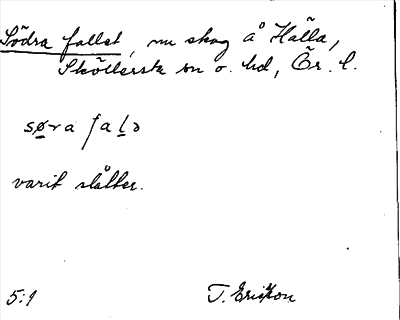 Södra fallet, nu skog å Hälla,
Sköllersta sn o. hd, Ör. l.
søra falə
varit slåtter.
5:1 T. Ericsson